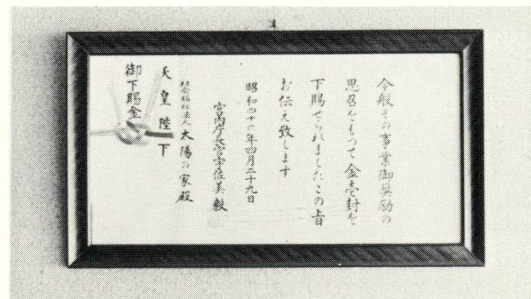 今般その事業御奨励の
思召をもつて金壱封を
下賜せられましたこの旨
お伝え致します
昭和四十二年四月二十九日
宮内庁長官宇佐美毅
社会福祉法人 太陽の家殿
天皇陛下
御下賜金